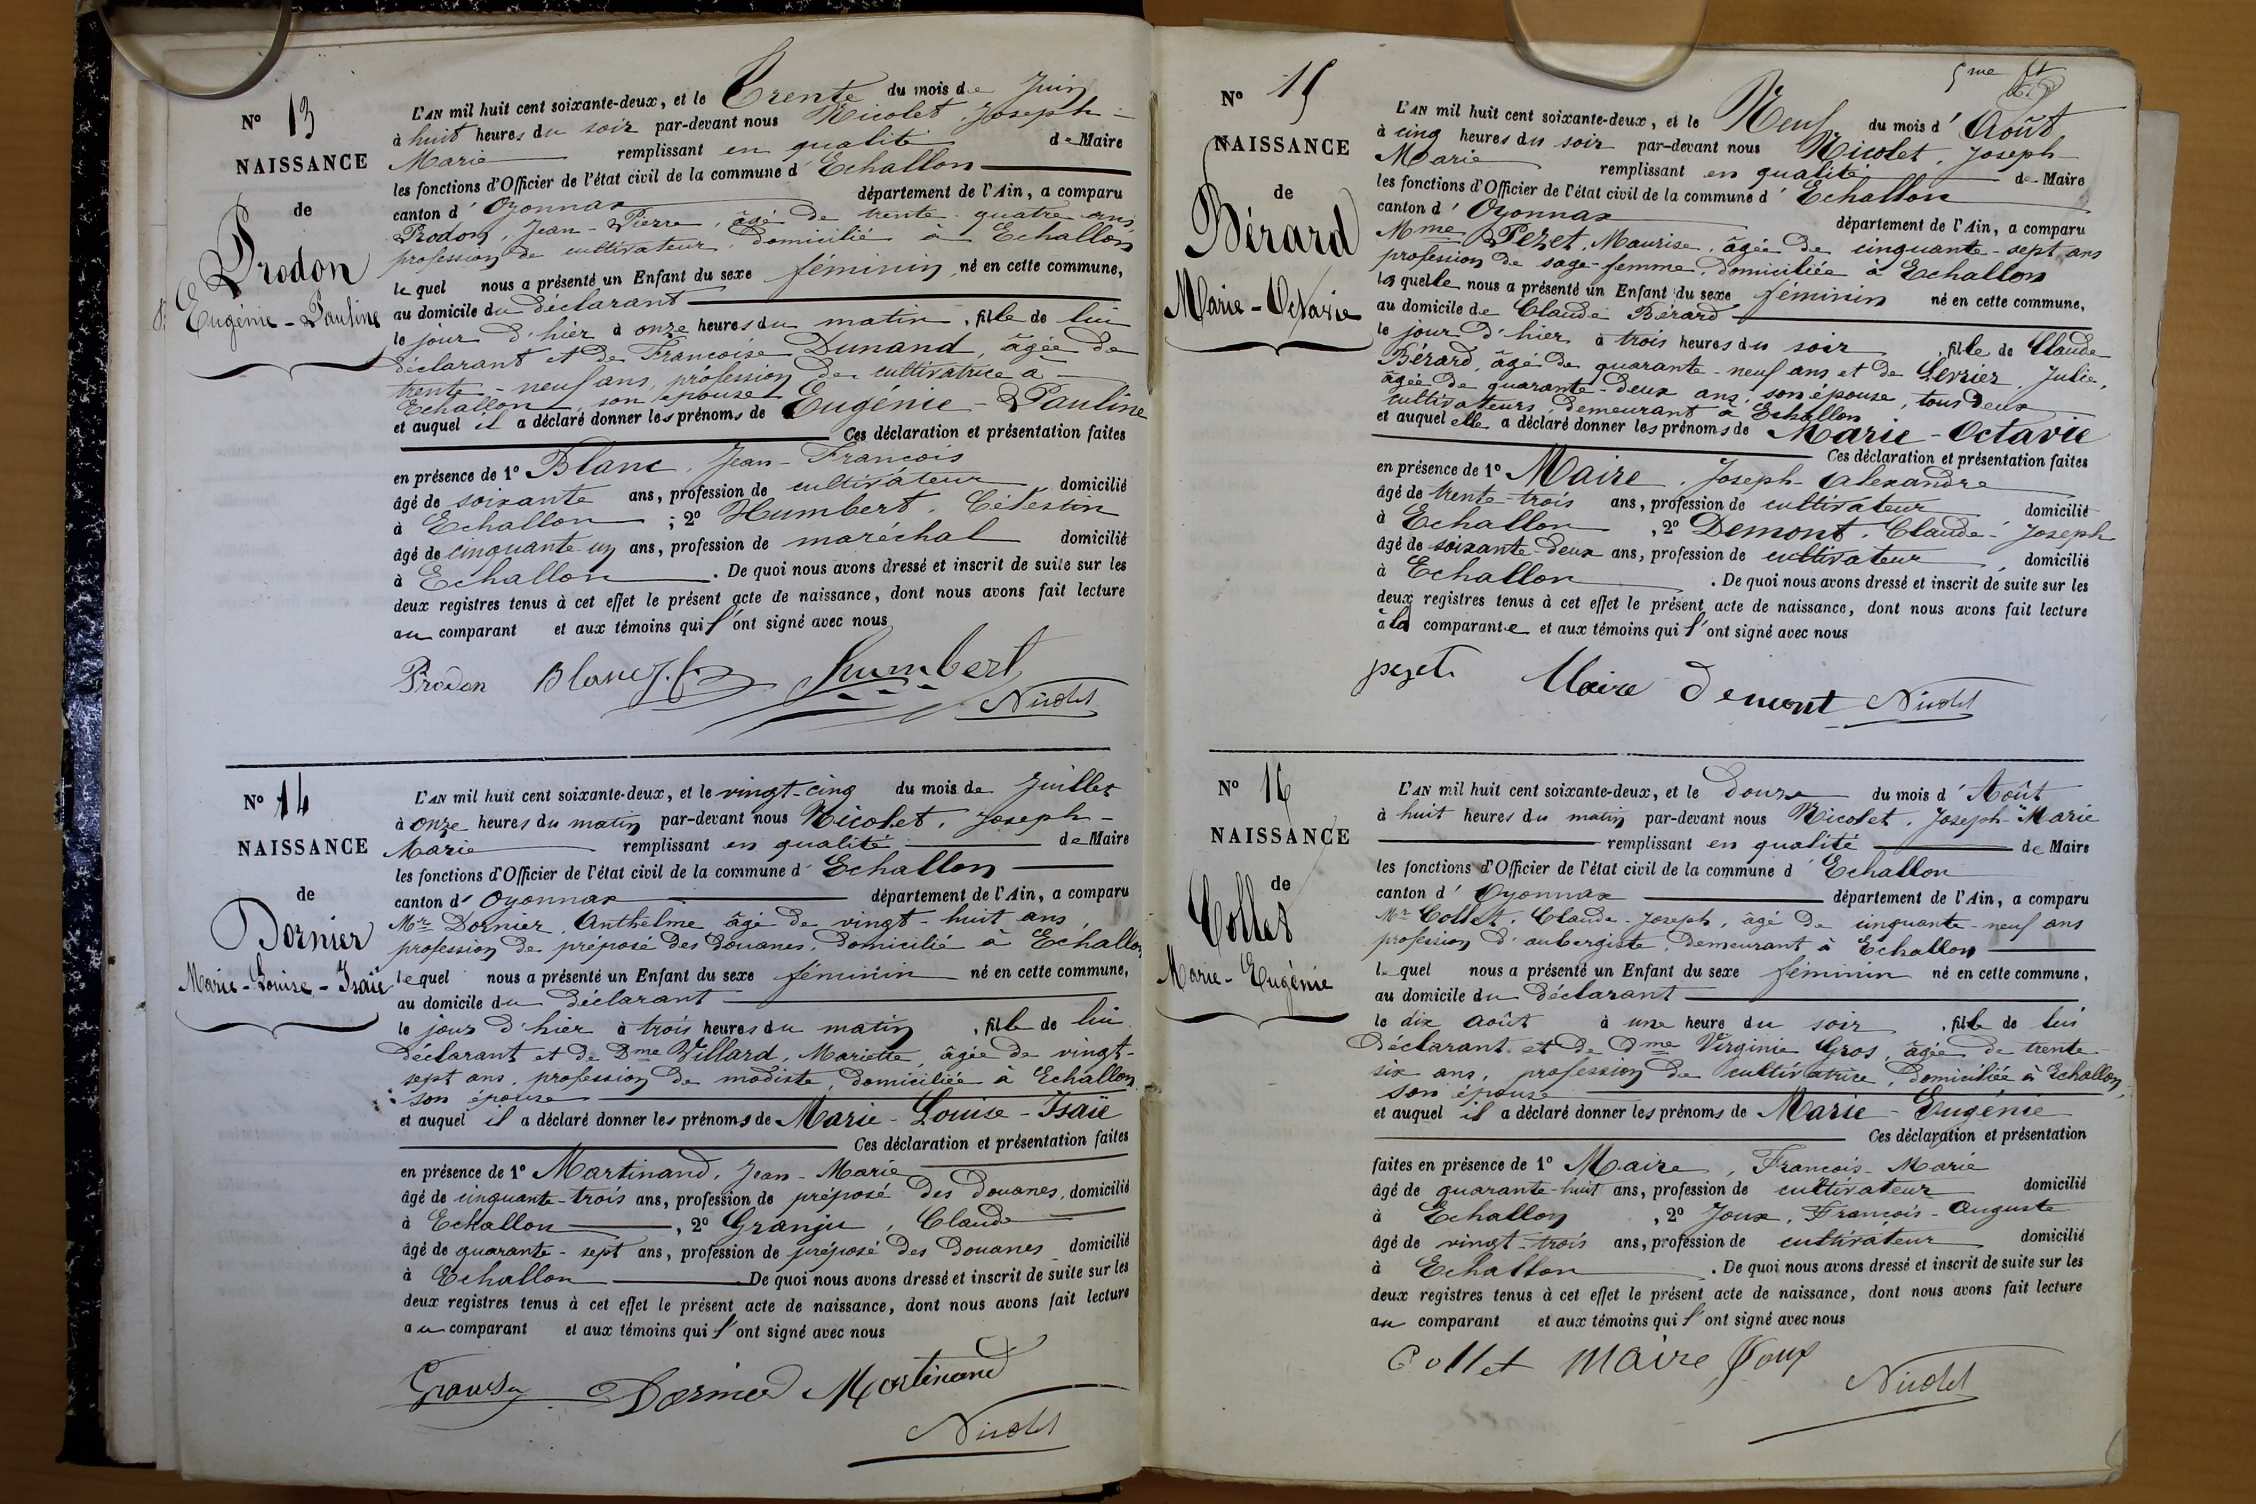 N° 13
NAISSANCE
de
Prodon
Eugénie - Pauline
L'AN mil huit cent soixante-deux, et le Trente du mois de Juin
à huit heures du soir par-devant nous Nicolet, Joseph-
Marie remplissant en qualité de Maire
les fonctions d'Officier de l'état civil de la commune d'Echallon
canton d'Oyonnax département de l'Ain, a comparu
Prodon, Jean-Pierre, âgé de trente-quatre ans,
profession de cultivateur, domicilié à Echallon
lequel nous a présenté un Enfant du sexe féminin, né en cette commune,
au domicile du déclarant
le jour d'hier à onze heures du matin, fille de lui
déclarant et de Françoise Dunand, âgée de
trente-neuf ans, profession de cultivatrice à
Echallon, son épouse
et auquel il a déclaré donner les prénoms de Eugénie - Pauline
Ces déclaration et présentation faites
en présence de 1° Blanc, Jean-François
âgé de soixante ans, profession de cultivateur domicilié
à Echallon ; 2° Humbert, Célestin
âgé de cinquante un ans, profession de maréchal domicilié
à Echallon. De quoi nous avons dressé et inscrit de suite sur les
deux registres tenus à cet effet le présent acte de naissance, dont nous avons fait lecture
au comparant et aux témoins qui l'ont signé avec nous
Prodon Blanc J. f Humbert
Nicolet
N° 14
NAISSANCE
de
Dornier
Marie-Louise-Isaïe
L'AN mil huit cent soixante-deux, et le vingt-cinq du mois de Juillet
à onze heures du matin par-devant nous Nicolet, Joseph-
Marie remplissant en qualité de Maire
les fonctions d'Officier de l'état civil de la commune d'Echallon
canton d'Oyonnax département de l'Ain, a comparu
Mr Dornier, Anthelme, âgé de vingt-huit ans,
profession de préposé des douanes, domicilié à Echallon
lequel nous a présenté un Enfant du sexe féminin né en cette commune,
au domicile du déclarant
le jour d'hier à trois heures du matin, fille de lui
déclarant et de Dme Villard, Mariette, âgée de vingt-
sept ans, profession de modiste, domiciliée à Echallon
son épouse
et auquel il a déclaré donner les prénoms de Marie-Louise-Isaïe
Ces déclaration et présentation faites
en présence de 1° Martinand, Jean-Marie
âgé de cinquante-trois ans, profession de préposé des douanes, domicilié
à Echallon, 2° Granju, Claude
âgé de quarante-sept ans, profession de préposé des douanes domicilié
à Echallon De quoi nous avons dressé et inscrit de suite sur les
deux registres tenus à cet effet le présent acte de naissance, dont nous avons fait lecture
au comparant et aux témoins qui l'ont signé avec nous
Dornier Martinand
Nicolet
5me ft
N° 15
NAISSANCE
de
Bérard
Marie-Octavie
L'AN mil huit cent soixante-deux, et le Neuf du mois d'Août
à cinq heures du soir par-devant nous Nicolet, Joseph-
Marie remplissant en qualité de Maire
les fonctions d'Officier de l'état civil de la commune d'Echallon
canton d'Oyonnax département de l'Ain, a comparu
Mme Pezet, Maurise, âgée de cinquante-sept ans
profession de sage-femme, domiciliée à Echallon
laquelle nous a présenté un Enfant du sexe féminin né en cette commune,
au domicile de Claude Bérard
le jour d'hier à trois heures du soir, fille de Claude
Bérard, âgé de quarante-neuf ans et de Levrier, Julie,
âgée de quarante-deux ans, son épouse, tous deux
cultivateurs, demeurant à Echallon
et auquel elle a déclaré donner les prénoms de Marie-Octavie
Ces déclaration et présentation faites
en présence de 1° Maire, Joseph-Alexandre
âgé de trente-trois ans, profession de cultivateur domicilié
à Echallon, 2° Demont, Claude-Joseph
âgé de soixante-deux ans, profession de cultivateur, domicilié
à Echallon. De quoi nous avons dressé et inscrit de suite sur les
deux registres tenus à cet effet le présent acte de naissance, dont nous avons fait lecture
à la comparante et aux témoins qui l'ont signé avec nous
pezet Maire Demont Nicolet
N° 16
NAISSANCE
de
Collet
Marie-Eugénie
L'AN mil huit cent soixante-deux, et le Douze du mois d'Août
à huit heures du matin par-devant nous Nicolet, Joseph-Marie
remplissant en qualité de Maire
les fonctions d'Officier de l'état civil de la commune d'Echallon
canton d'Oyonnax département de l'Ain, a comparu
Mr Collet, Claude-Joseph, âgé de cinquante-neuf ans
profession d'aubergiste, demeurant à Echallon
lequel nous a présenté un Enfant du sexe féminin né en cette commune,
au domicile du déclarant
le dix août à une heure du soir, fille de lui
déclarant et de Dme Virginie Gros, âgée de trente-
six ans, profession de cultivatrice, domiciliée à Echallon,
son épouse
et auquel il a déclaré donner les prénoms de Marie-Eugénie
Ces déclaration et présentation
faites en présence de 1° Maire, François-Marie
âgé de quarante-huit ans, profession de cultivateur domicilié
à Echallon, 2° Joux, François-Auguste
âgé de vingt-trois ans, profession de cultivateur domicilié
à Echallon. De quoi nous avons dressé et inscrit de suite sur les
deux registres tenus à cet effet le présent acte de naissance, dont nous avons fait lecture
au comparant et aux témoins qui l'ont signé avec nous
Collet Maire Joux
Nicolet